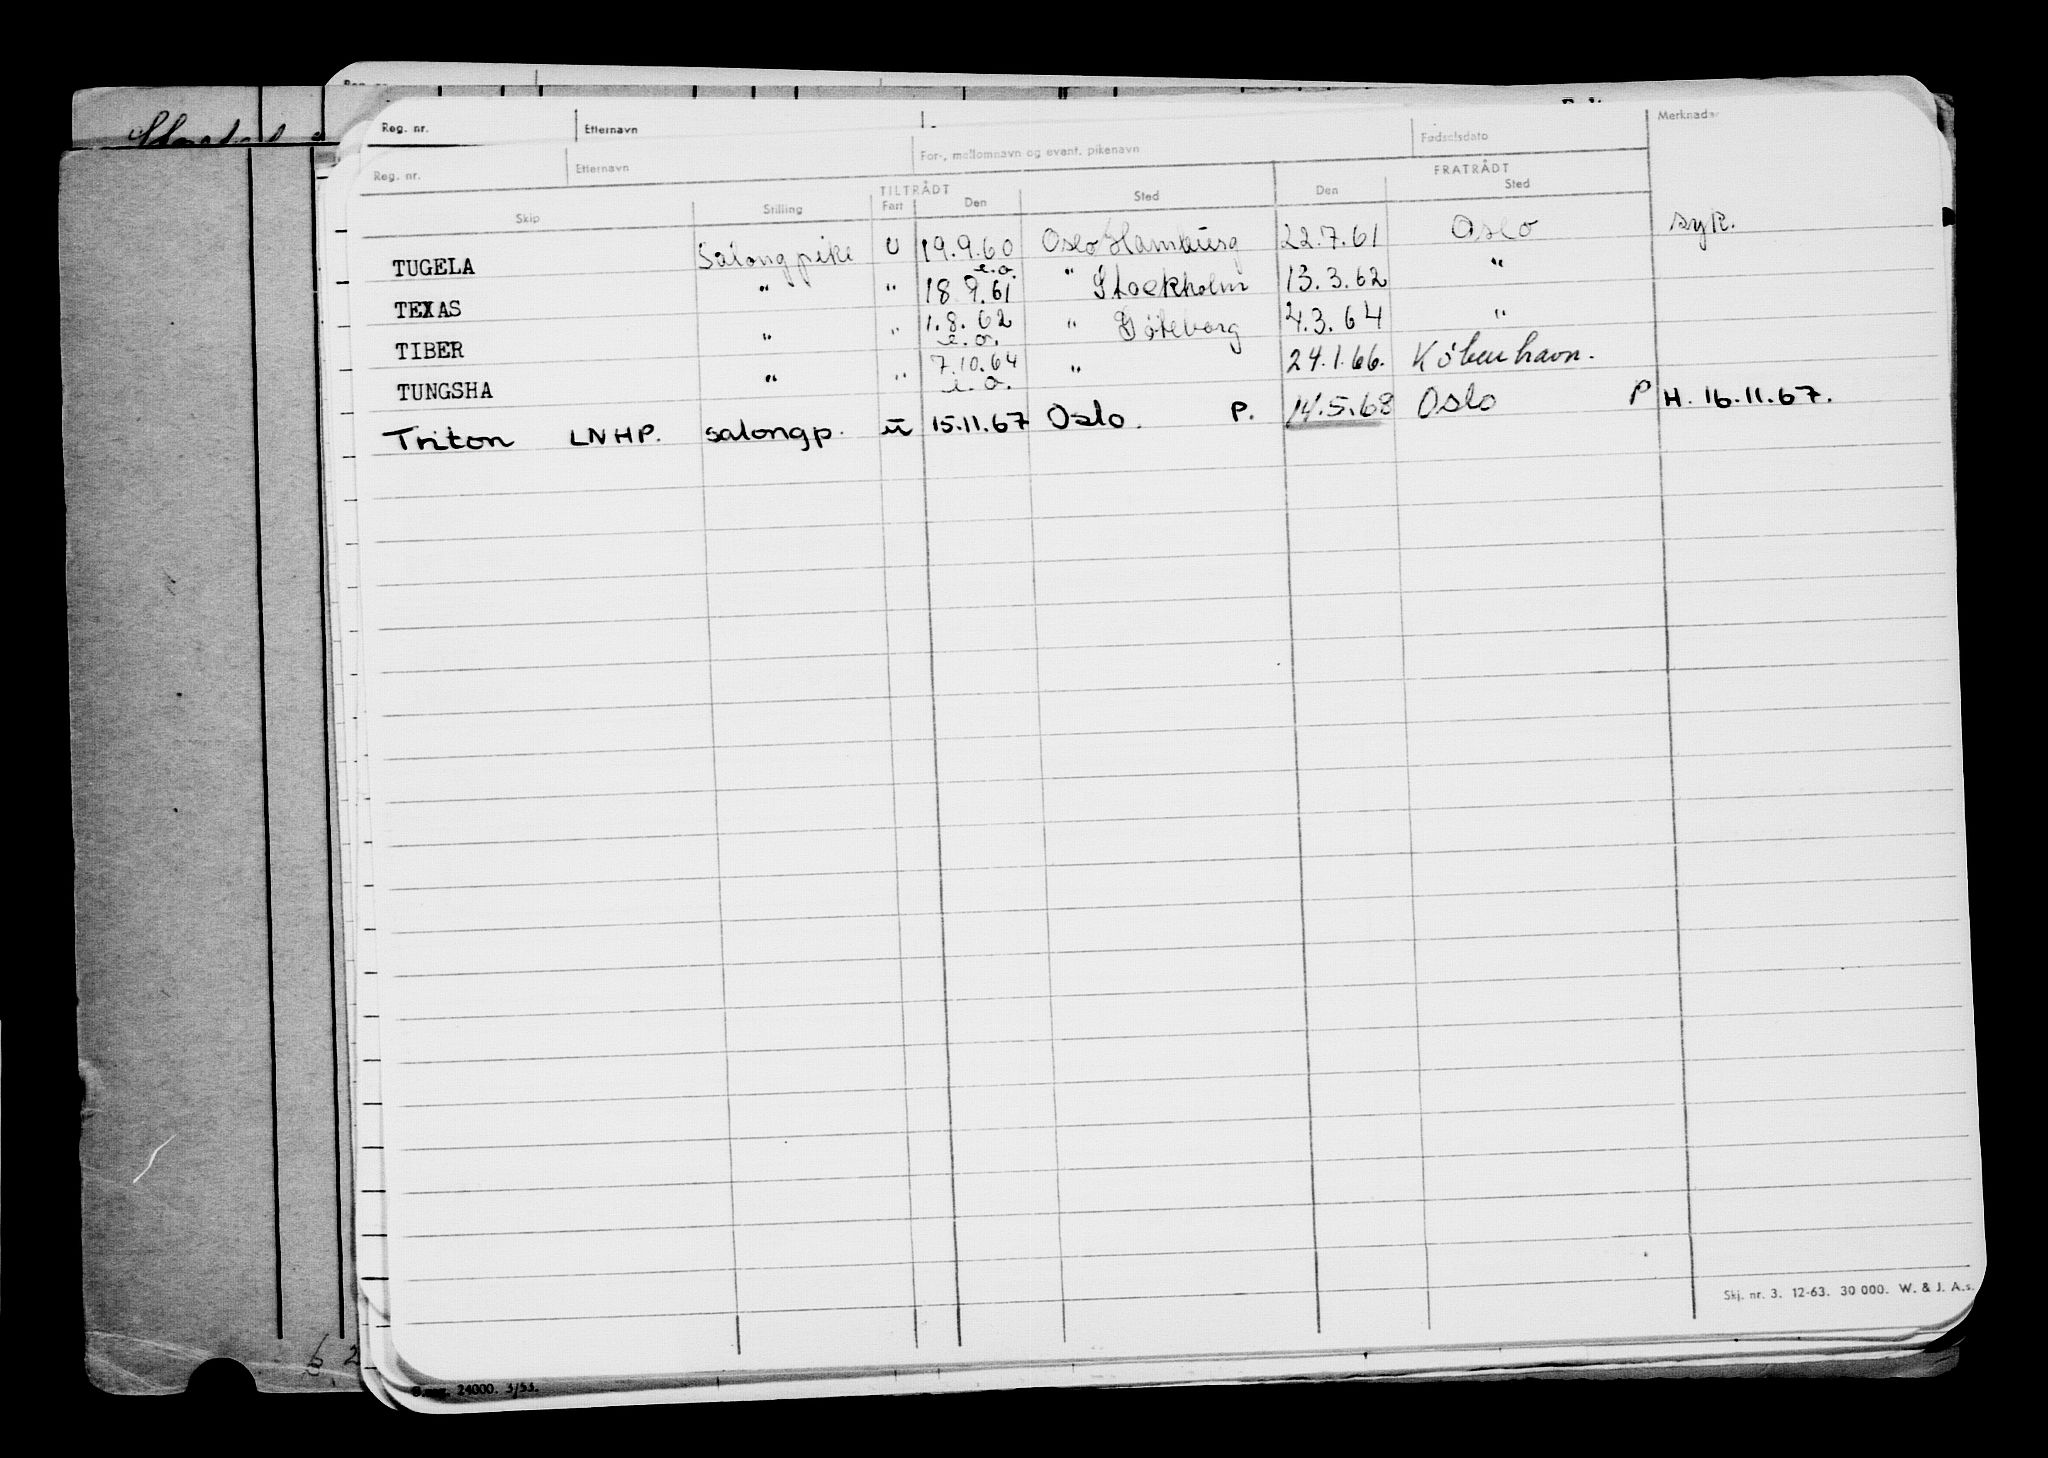 Reg. nr. Etternavn
Reg. nr. Etternavn For-, mellomnavn og event. pikenavn Fødselsdato Merknader
TILTRÅDT FRATRÅDT
Skip Stilling Fart Den Sted Den Sted
TUGELA Salongpike U 19.9.60 Oslo Hamburg 22.7.61 Oslo syk.
e.o.
TEXAS " " 18.9.61 " Stockholm 13.3.62 "
TIBER " " 1.8.62 " Gøteborg 4.3.64 "
e.o.
TUNGSHA " " 7.10.64 " 24.1.66. København.
e.o.
Triton LNHP. salongp. u 15.11.67 Oslo. P. 14.5.68 Oslo P H. 16.11.67.
Skj. nr. 3. 12-63. 30 000. W. & J. A.s.
24000. 3/53.